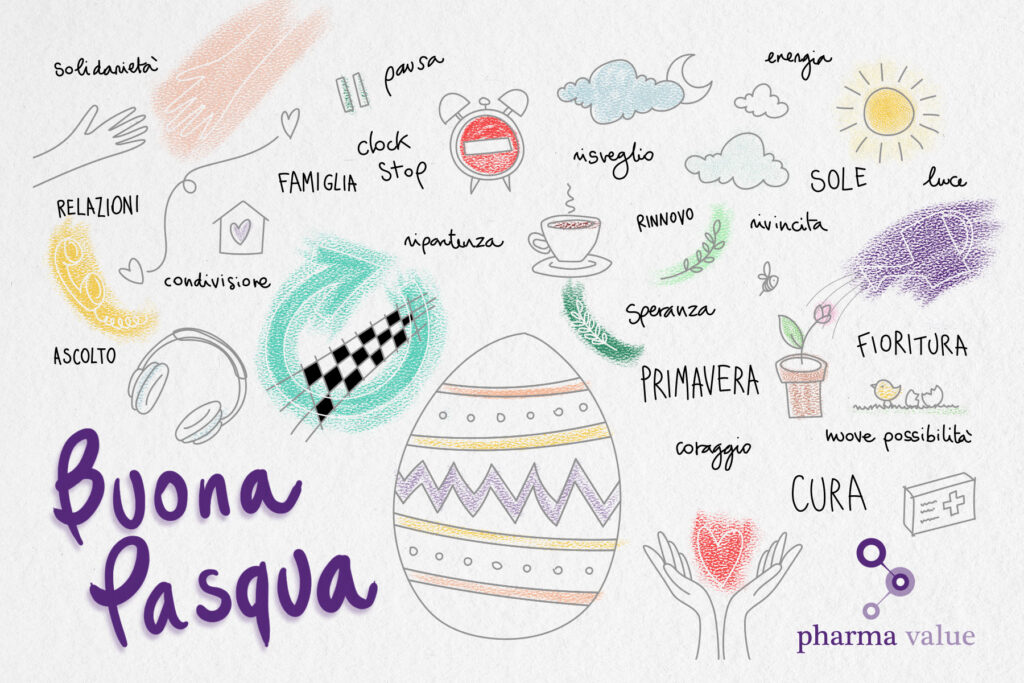 solidarietà
pausa
energia
clock
stop
risveglio
FAMIGLIA
SOLE
luce
RELAZIONI
RINNOVO
rivincita
ripartenza
condivisione
speranza
ASCOLTO
FIORITURA
PRIMAVERA
nuove possibilità
coraggio
CURA
Buona
Pasqua
pharma value